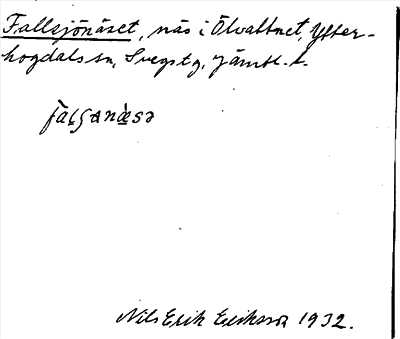 Fallsjönäset, näs i Ölvattnet, Ytter-
hogdals sn, Svegs tg, Jämtl. l.
Nils Erik Eriksson 1932.